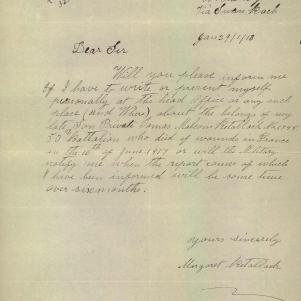 Via Swan Reach
Jan 29/1/18
Dear Sir
Will you please inform me
If I have to write or present myself
personally at the head office or any such
place (and Where) about the belongs of my
late Son Private Tomas Malcom Retallack No
50 Battalion who died of wounds in France
on the 10th of June 1917 or will the Military
notify me when the report comes of which
I have been informed will be some time
over six months.
Yours sincerely
Margaret Retallack